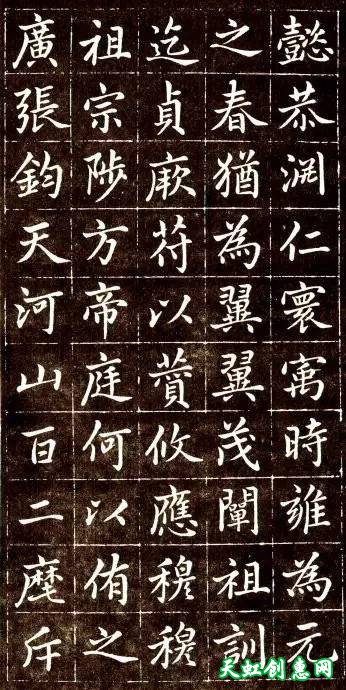 懿恭渊仁寰寓時雍為元
之春猶為翼翼茂闡祖訓
迄貞厥符以蕒攸應穆穆
祖宗陟方帝庭何以侑之
廣張鈞天河山百二麾斥
天虹创意网